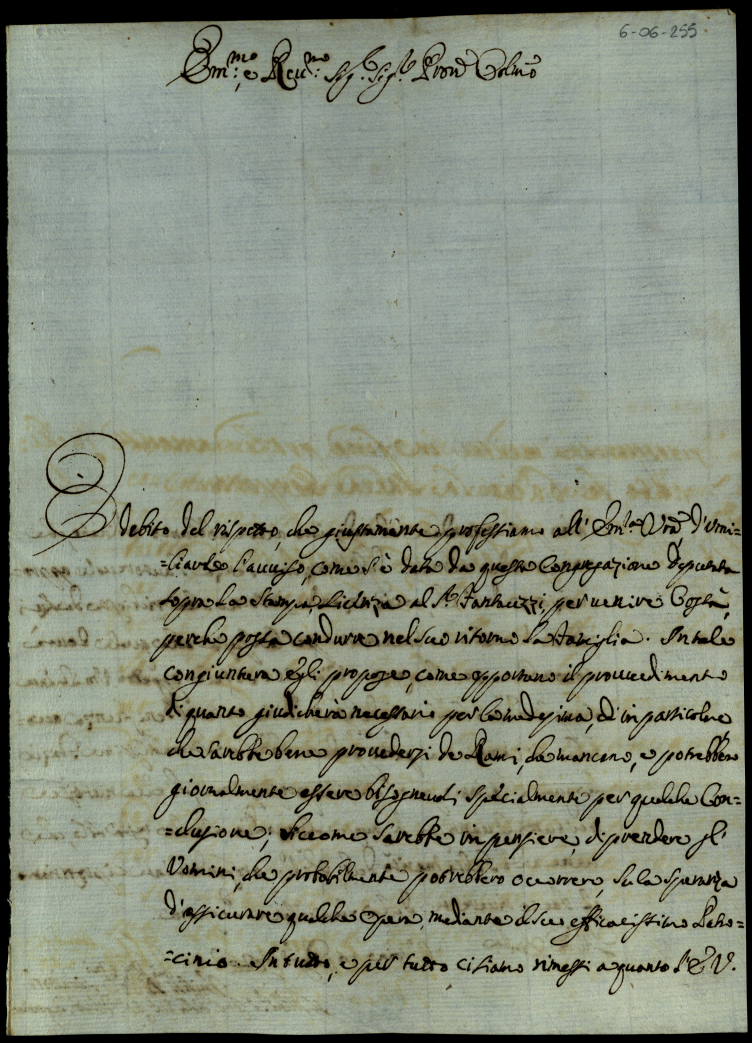 6-06-255
Em.mo e Rev.mo Sig.r Sig.r Pron Colmo
È debito del rispetto, che giustamente professiamo all' Em.za Vra, d'umi=
=liarle l'avviso, come s'è data da questa Congregazione Deputata
sopra la Stampa, Licenza al S.r Fantuzzi, per venire Costà,
perche possa condurre nel suo ritorno la Famiglia. In tale
congiuntura egli propose, come opportuno il provvedimento
di quanto giudicherà necessario per la medesima, ed in particolare
che sarebbe bene provedersi de Rami, che mancano, e potrebbero
giornalmente essere bisognevoli specialmente per qualche Con=
=clusione; siccome sarebbe in pensiere, di prendere gl'
Uomini, che probabilmente potrebbero occorrere, su la speranza
d'assicurare qualche opera, mediante il suo efficacissimo Patro=
=cinio. In tutto, e per tutto ci siamo rimessi a quanto l'E.V.